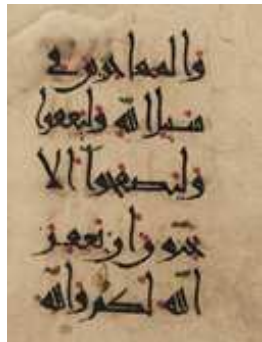 والمهاجرين في
سبيل الله وليعفوا
وليصفحوا ألا
تحبون أن يغفر
الله لكم والله